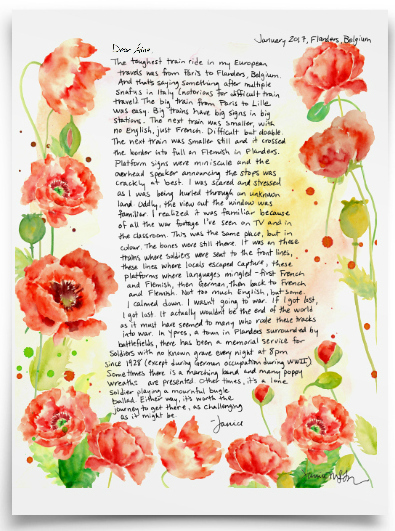 January 2017, Flanders, Belgium
Dear
The toughest train ride in my European
travels was from Paris to Flanders, Belgium.
And that's saying something after multiple
snafus in Italy (notorious for difficult train
travel). The big train from Paris to Lille
was easy. Big trains have big signs in big
stations. The next train was smaller, with
no English, just French. Difficult but doable.
The next train was smaller still and it crossed
the border into full on Flemish in Flanders.
Platform signs were miniscule and the
overhead speaker announcing the stops was
crackly at best. I was scared and stressed
as I was being hurled through an unknown
land. Oddly, the view out the window was
familiar. I realized it was familiar because
of all the war footage I've seen on TV and in
the classroom. This was the same place, but in
colour. The bones were still there. It was on these
trains where soldiers were sent to the front lines,
these lines where locals escaped capture, these
platforms where languages mingled - first French
and Flemish, then German, then back to French
and Flemish. Not too much English, but some.
I calmed down. I wasn't going to war. If I got lost,
I got lost. It actually wouldn't be the end of the world
as it must have seemed to many who rode these tracks
into war. In Ypres, a town in Flanders surrounded by
battlefields, there has been a memorial service for
soldiers with no known grave every night at 8pm
since 1928 (except during German occupation during WWII).
Sometimes there is a marching band and many poppy
wreaths are presented. Other times, it's a lone
soldier playing a mournful bugle
ballad. Either way, it's worth the
journey to get there, as challenging
as it might be.
- Janice